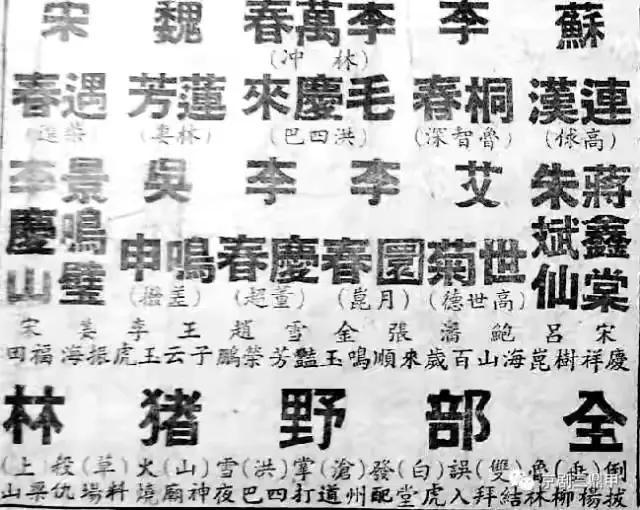 蘇 李 李萬春 魏 宋
(林冲)
連漢 桐春 毛慶來 蓮芳 遇春
(高俅) (魯智深) (洪四巴) (林妻) (柴進)
蔣鑫棠 朱斌仙 艾世菊 李圓春 李慶春 吳鳴申 景鳴璧 李慶山
(高世德) (月崑) (董超) (差撥)
宋慶祥 呂樹崑 鮑海山 潘百歲 張來順 金鳴玉 雪豔芳 趙榮鵬 王子云 李玉虎 姜振海 宋福田
全部野猪林
倒拔(垂)楊柳 魯林結(雙)拜 誤入(白)虎堂 發配(滄)州道 掌打(洪)四巴 雪夜(山)神廟 火燒(草)料場 殺仇(上)梁山
京剧三鼎甲